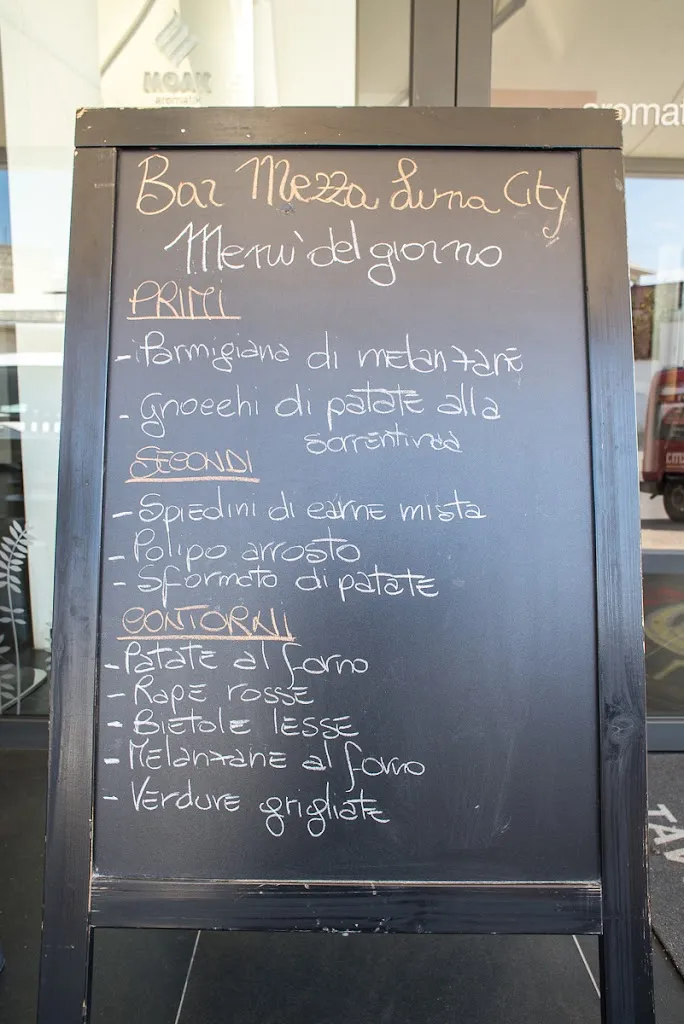 MOAK
aromatik
aromat
Bar Mezza Luna City
Menu' del giorno
PRIMI
- Parmigiana di melanzane
- Gnocchi di patate alla
sorrentina
SECONDI
- Spiedini di carne mista
- Polipo arrosto
- Sformato di patate
CONTORNI
- Patate al forno
- Rape rosse
- Bietole lesse
- Melanzane al forno
- Verdure grigliate
TAV